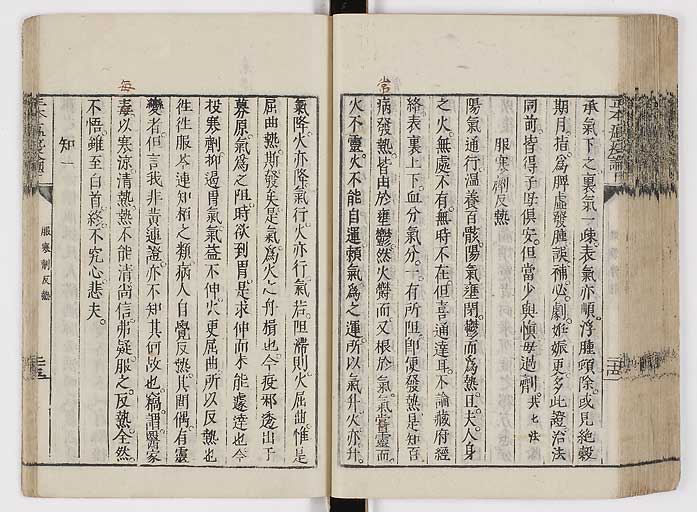 承氣下之裏氣一疎表氣亦順浮腫頓除或見絶穀
期月指爲脾虛發腫誤補必劇妊娠更多此證治法
同前皆得子母俱安但當少與愼毋過劑共七法
服寒劑反熱
陽氣通行溫養百骸陽氣壅閉鬱而爲熱且夫人身
之火無處不有無時不在但喜通達耳不論臟府經
絡表裏上下血分氣分一有所阻卽便發熱是知百
病發熱皆由於壅鬱然火鬱而又根於氣氣嘗靈而
常
火不靈火不能自運賴氣爲之運所以氣升火亦升
氣降火亦降氣行火亦行氣若阻滯則火屈曲惟是
屈曲熱斯發矣是氣爲火之舟楫也今疫邪透出于
募原氣爲之阻時欲到胃是求伸而未能遽達也今
投寒劑抑遏胃氣氣益不伸火更屈曲所以反熱也
往往服芩連知栢之類病人自覺反熱其間偶有靈
變者但言我非黃連證亦不知其何故也竊謂醫家
每
毒以寒涼清熱熱不能清尚信弗疑服之反熱全然
不悟雖至白首終不究心悲夫
知一
服寒劑反熱
二十五